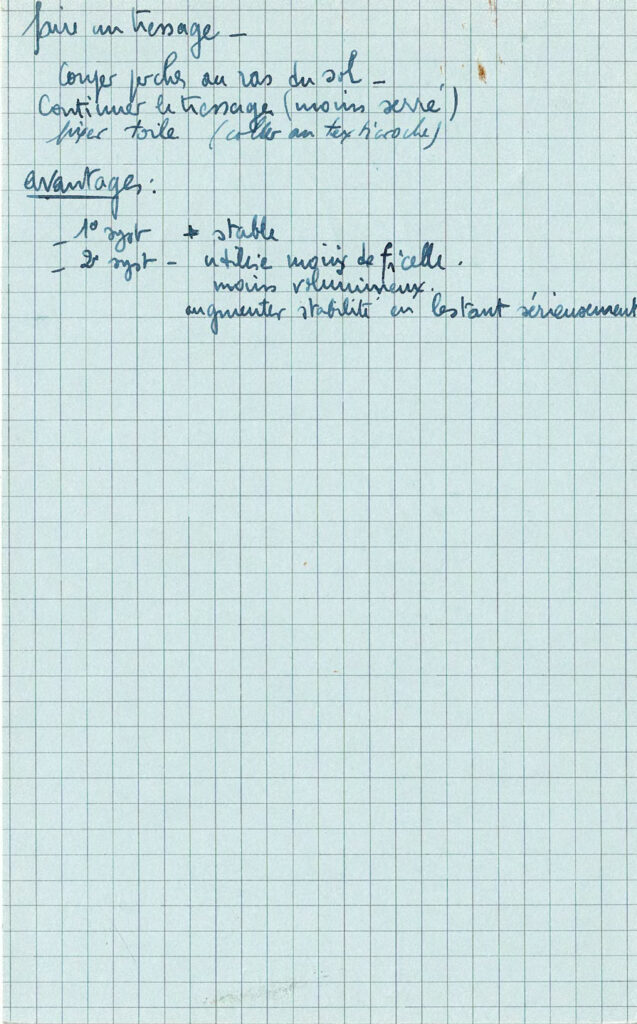 faire un tressage -
Couper perches au ras du sol -
Continuer le tressage (moins serré)
fixer toile (coller au texticroche)
avantages :
- 1° syst + stable
- 2° syst - utilise moins de ficelle.
moins volumineux.
augmenter stabilité en lestant sérieusement